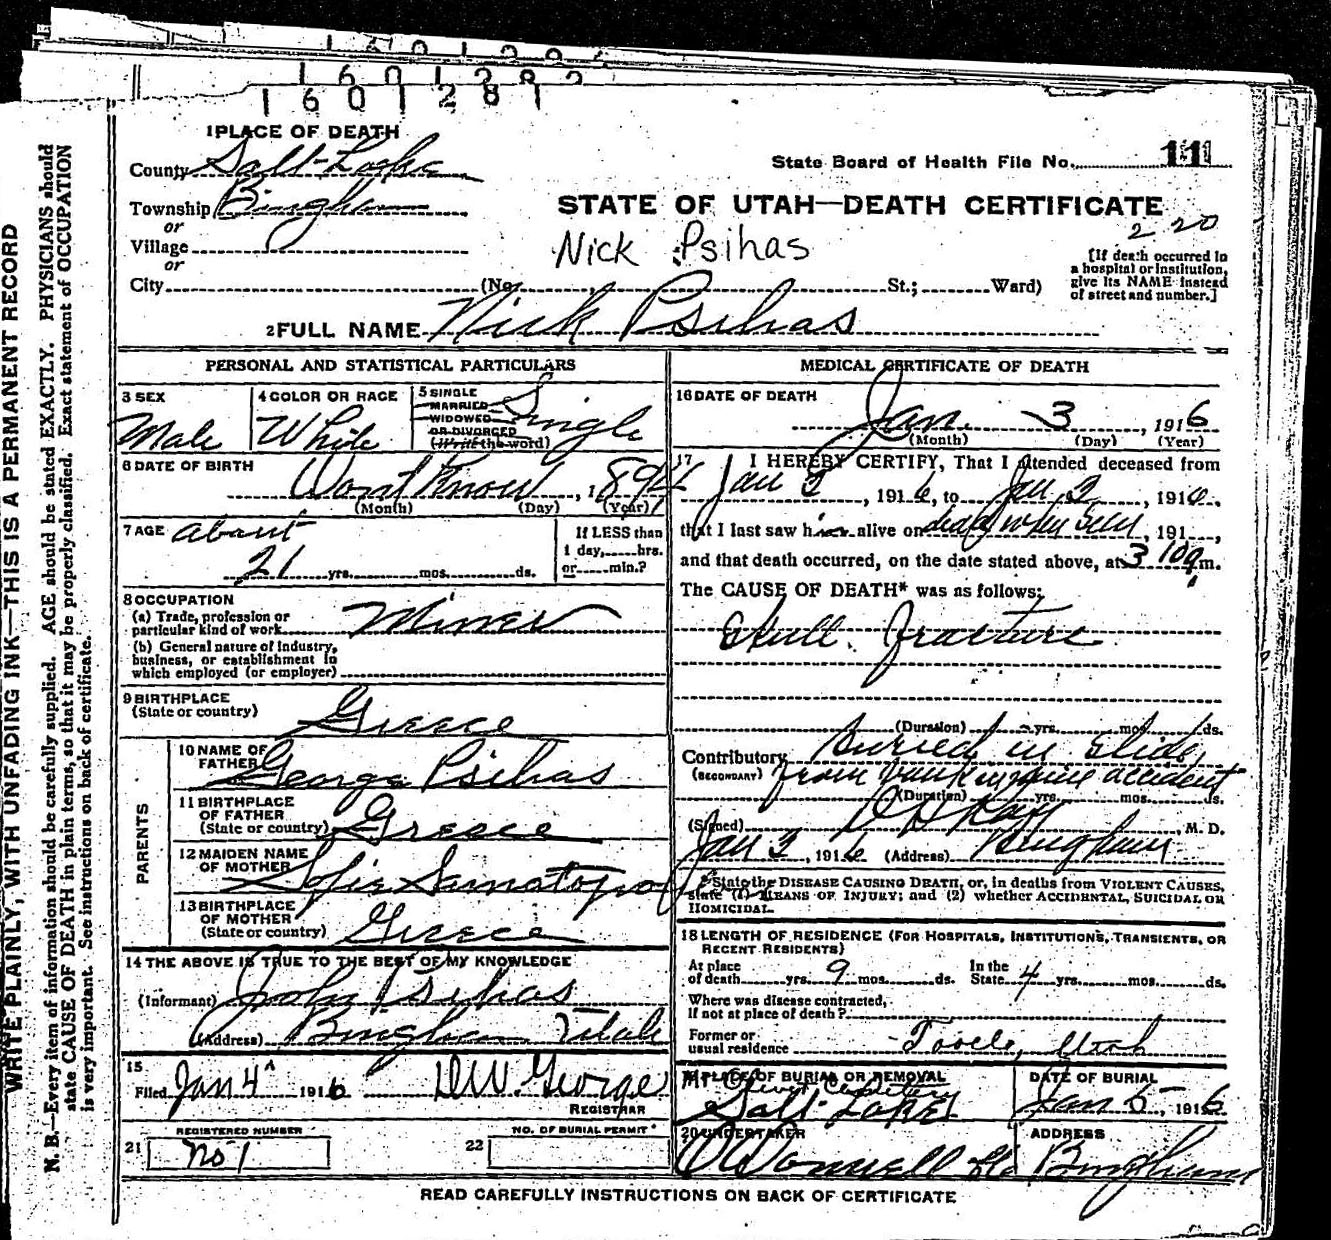 1601282
1601281
1 PLACE OF DEATH
County Salt-Lake
State Board of Health File No. 111
Township Bingham
or
STATE OF UTAH—DEATH CERTIFICATE
220
Village
or
Nick Psihas
[If death occurred in a hospital or institution, give its NAME instead of street and number.]
City (No. St.; Ward)
2 FULL NAME Nick Psihas
PERSONAL AND STATISTICAL PARTICULARS
3 SEX
Male
4 COLOR OR RACE
White
5 SINGLE
MARRIED
WIDOWED
OR DIVORCED
(Write the word)
Single
6 DATE OF BIRTH
Wont Know, 1894
(Month) (Day) (Year)
7 AGE about
21 yrs. mos. ds.
If LESS than
1 day, hrs.
or min.?
8 OCCUPATION
(a) Trade, profession or
particular kind of work Miner
(b) General nature of Industry,
business, or establishment in
which employed (or employer)
9 BIRTHPLACE
(State or country) Greece
PARENTS
10 NAME OF
FATHER George Psihas
11 BIRTHPLACE
OF FATHER
(State or country) Greece
12 MAIDEN NAME
OF MOTHER Sofie
13 BIRTHPLACE
OF MOTHER
(State or country) Greece
14 THE ABOVE IS TRUE TO THE BEST OF MY KNOWLEDGE
(Informant) John Psihas
(Address) Bingham Utah
15
Filed Jan 4, 1916 D.W. George
REGISTRAR
REGISTERED NUMBER
21 No 1
NO. OF BURIAL PERMIT
22
MEDICAL CERTIFICATE OF DEATH
16 DATE OF DEATH
Jan. 3, 1916
(Month) (Day) (Year)
17 I HEREBY CERTIFY, That I attended deceased from
Jan 3, 1916, to Jan 3, 1916.
that I last saw him alive on dead when seen, 191
and that death occurred, on the date stated above, at 3 10 a m.
The CAUSE OF DEATH* was as follows:
Skull Fracture
(Duration) yrs. mos. ds.
Contributory Buried in slide
(SECONDARY) from bank in mine accident
(Duration) yrs. mos. ds.
(Signed) M. D.
Jan 3, 1916 (Address) Bingham
*State the DISEASE CAUSING DEATH, or, in deaths from VIOLENT CAUSES,
state (1) MEANS OF INJURY; and (2) whether ACCIDENTAL, SUICIDAL OR
HOMICIDAL.
18 LENGTH OF RESIDENCE (FOR HOSPITALS, INSTITUTIONS, TRANSIENTS, OR
RECENT RESIDENTS)
At place
of death yrs. 9 mos. ds. In the
State 4 yrs. mos. ds.
Where was disease contracted,
If not at place of death?
Former or
usual residence Tooele, Utah
PLACE OF BURIAL OR REMOVAL
Salt Lake
DATE OF BURIAL
Jan 5, 1916
20 UNDERTAKER
O'Donnell
ADDRESS
Bingham
READ CAREFULLY INSTRUCTIONS ON BACK OF CERTIFICATE
WRITE PLAINLY, WITH UNFADING INK—THIS IS A PERMANENT RECORD
N. B.—Every item of information should be carefully supplied. AGE should be stated EXACTLY. PHYSICIANS should
state CAUSE OF DEATH in plain terms, so that it may be properly classified. Exact statement of OCCUPATION
is very important. See instructions on back of certificate.